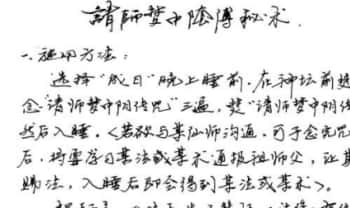 請師梦中陰傳秘术.
一.施用方法:
选择“成日”晚上睡前.在神坛前焚
念“请师梦中阴传咒”三遍,焚“请师梦中阴传
然后入睡.<若欲与某仙师沟通,可于念完咒
后,将需学习某法或某术通报祖师父,让其
赐法,入睡后即会得到某法或某术>.